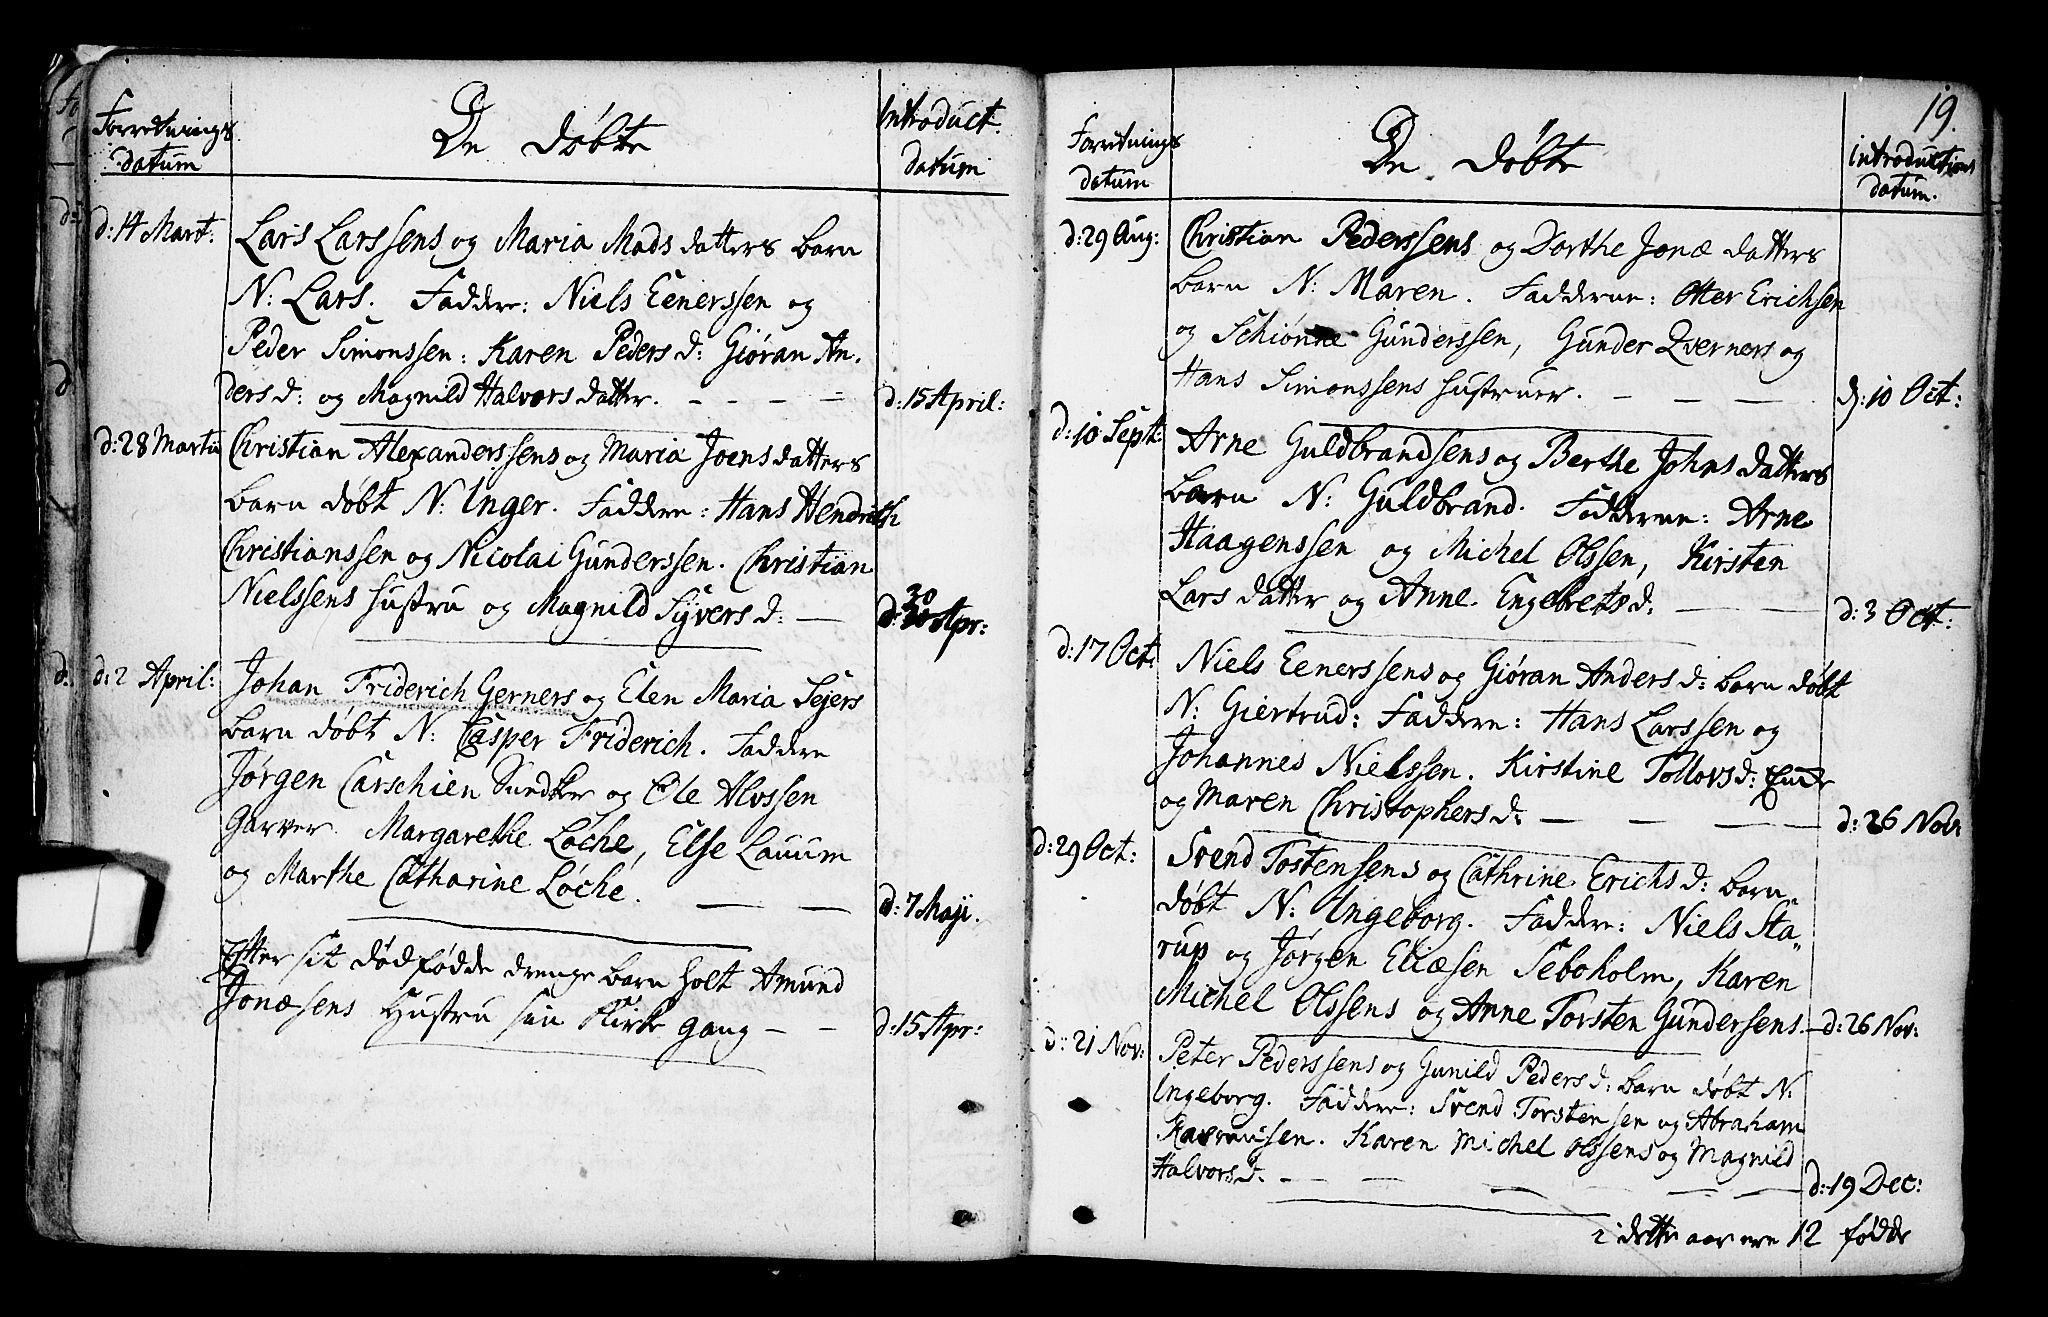 Forretnings
datum
De døbte
Introduct.
datum
d: 14 Mart:
Lars Larssens og Maria Mads datters barn
N: Lars. Faddere: Niels Eenerssen og
Peder Simonssen: Karen Peders d: Giøran An-
ders d: og Magnild Halvors datter. - - - -
d: 15 April:
d: 28 Martii
Christian Alexanderssens og Maria Joens datters
barn døbt N: Inger. Faddere: Hans Hendrich
Christianssen og Nicolai Gunderssen. Christian
Nielssens hustru og Magnild Syvers d: —
d: 30 Apr:
d: 2 April:
Johan Friderich Gerners og Elen Maria Sejers
barn døbt N: Casper Friderich. Faddere
Jørgen Carschien Snedker og Ole Alvssen
Garver. Margarethe Løche, Else Lauum
og Marthe Catharine Løche. — —
d: 7 Maji.
Efter sit dødfødde drenge barn holt Amund
Jonæsens Hustru sin Kirke gang — —
d: 15 Apr:
19.
Forretnings
datum
De døbte
introductions
datum.
d: 29 Aug:
Christian Pederssens og Dorthe Jonæ datters
barn N: Maren. Fadderne: Otter Erichsen
og Schiønne Gunderssen, Gunder Zverners og
Hans Simonssens hustruer. — — —
d: 10 Oct:
d: 10 Sept:
Arne Guldbrandsens og Berthe Johns datters
barn N: Guldbrand. Fadderne: Arne
Haagenssen og Michel Olssen, Kirsten
Lars datter og Anne Engebrets d: — —
d: 3 Oct:
d: 17 Oct:
Niels Eenerssens og Giøran Anders d: barn døbt
N: Giertrud: Faddere: Hans Larssen og
Johannes Nielssen. Kirstine Tollovs d:
og Maren Christophers d: — — — —
d: 26 Nov:
d: 29 Oct:
Svend Tostensens og Cathrine Erichs d: barn
døbt N: Ingeborg. Faddere: Niels Sta-
rup og Jørgen Eliæsen Seboholm, Karen
Michel Olssens og Anne Torsten Gundersens. —
d: 26 Nov:
d: 21 Nov:
Peter Pederssens og Gunild Peders d: barn døbt N:
Ingeborg. Faddere: Svend Torstensen og Abraham
Rasmussen. Karen Michel Olssens og Magnild
Halvors d: - - — — — —
d: 19 Dec:
i dette aar ere 12 fødde